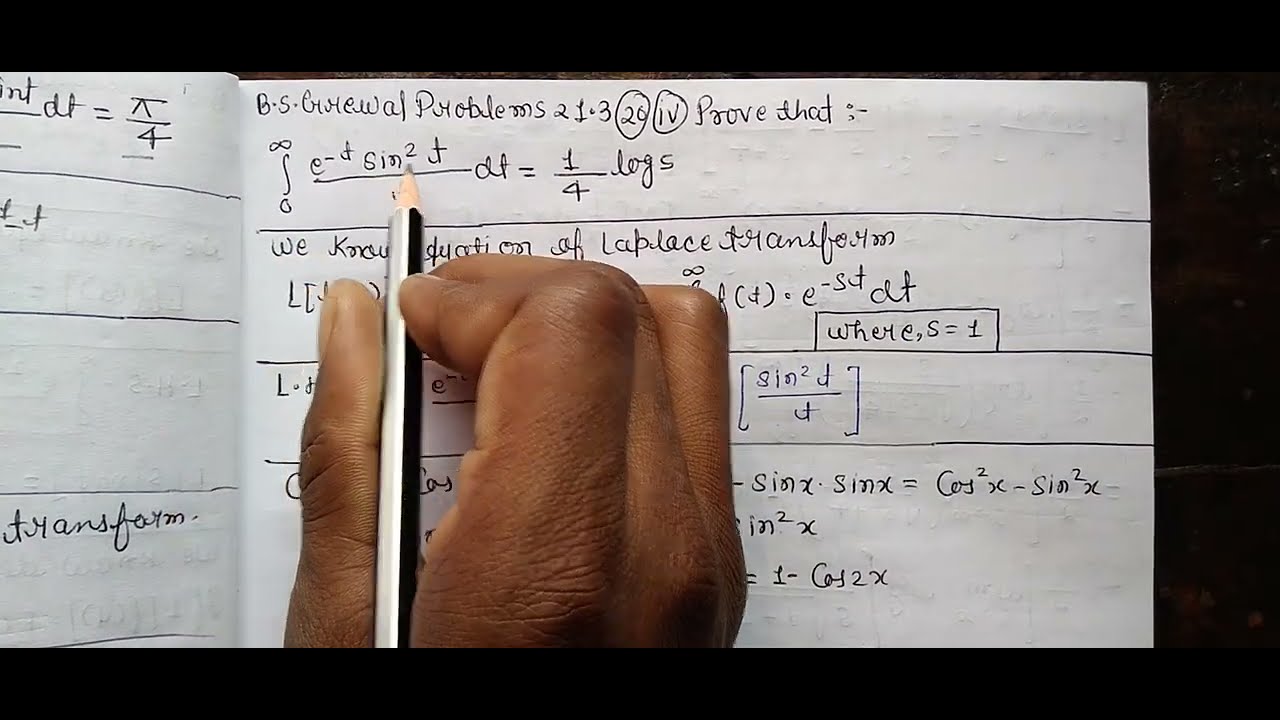 int dt = π/4
1.t
transform.
B.S. Grewal Problems 21.3 (20) (iv) Prove that :-
∞∫0 e^-t sin² t dt = 1/4 log 5
We know equation of Laplace transform
L[f f(t)·e^-st dt
where, s = 1
L. e^- [sin² t / t]
Cos - sinx·sinx = Cos²x - sin²x
sin²x
= 1 - Cos2x